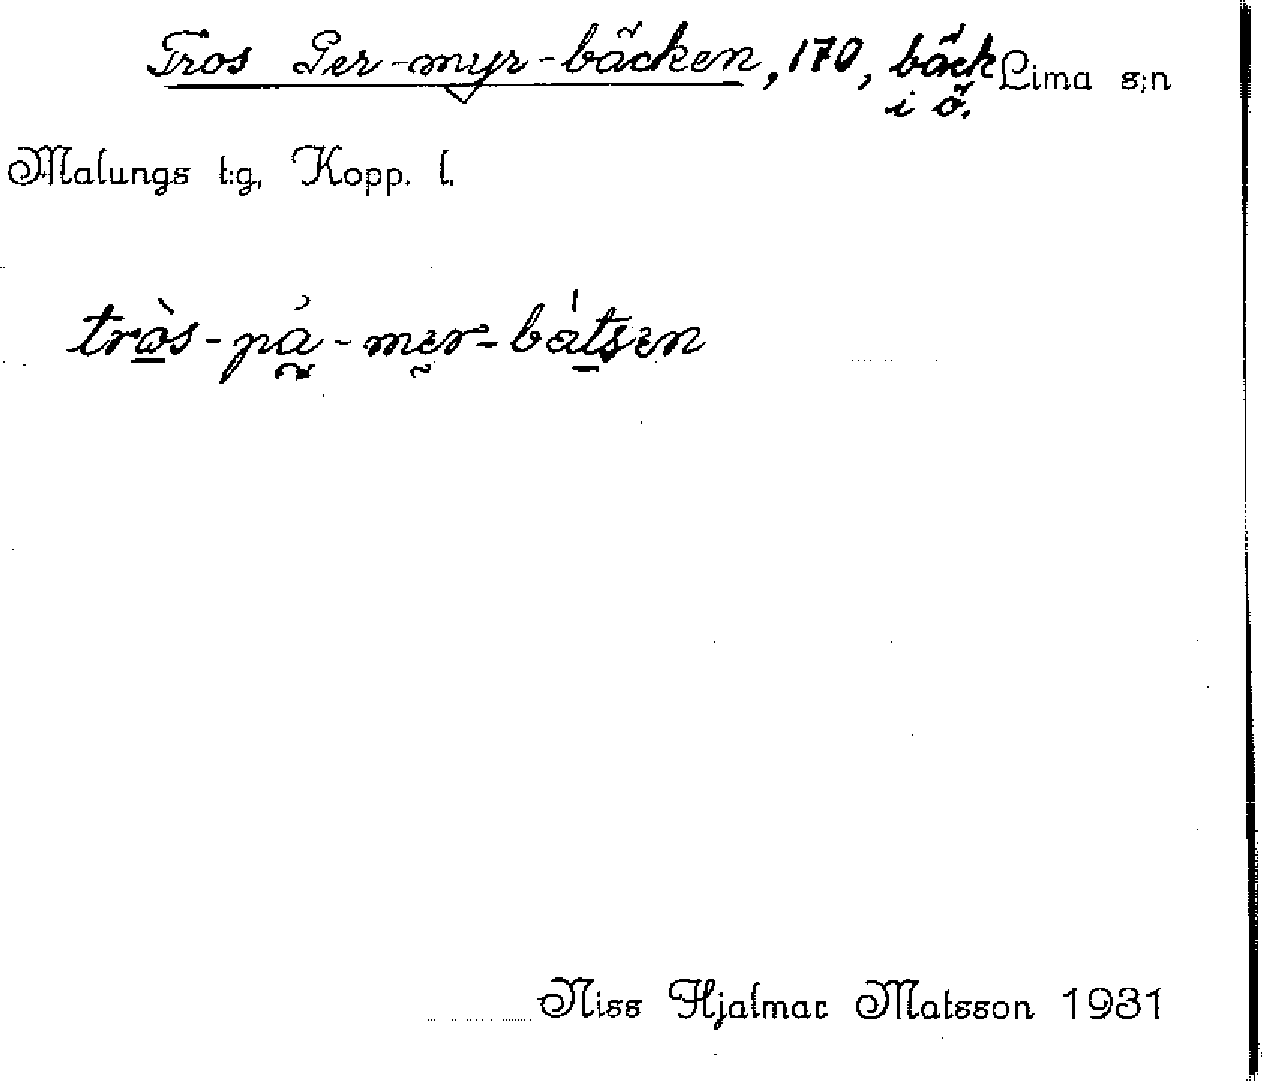 Tros Per-myr-bäcken, 170, bäck Lima s:n
i ö.
Malungs t:g, Kopp. l.
tròs-pá-mer-bátsen
Niss Hjalmar Matsson 1931